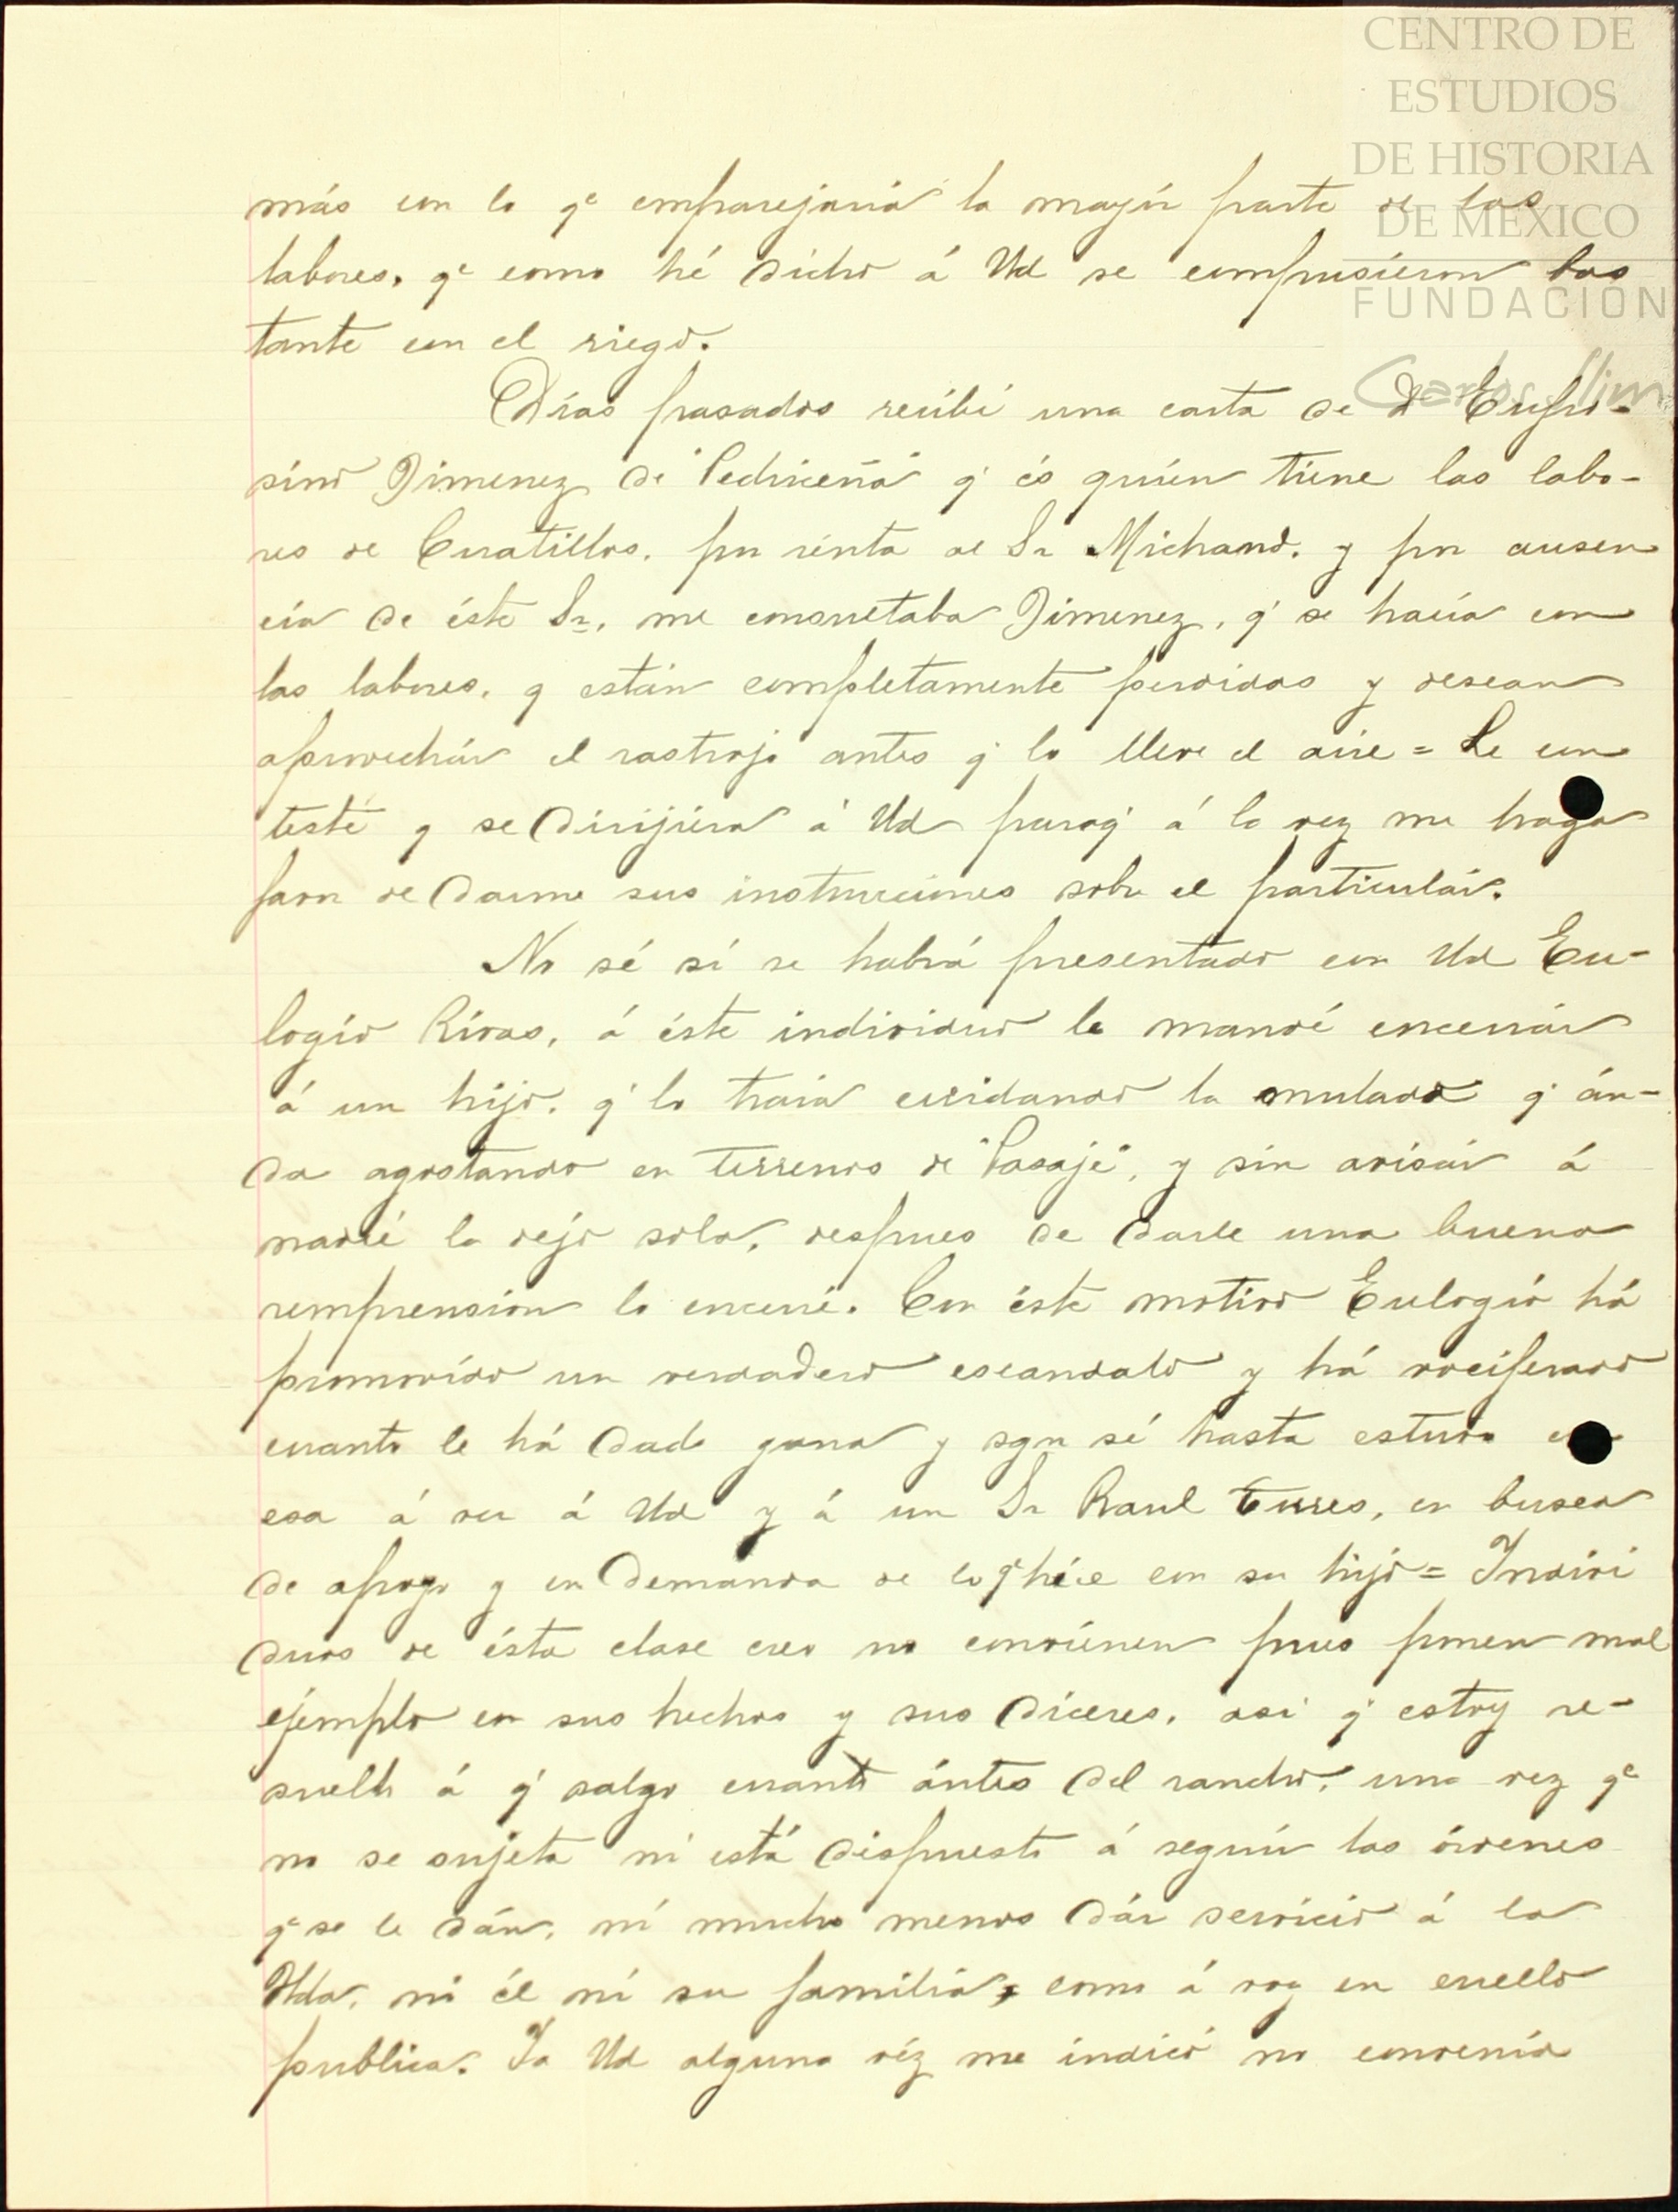 CENTRO DE
ESTUDIOS
DE HISTORIA
DE MÉXICO
FUNDACIÓN
Carlos Slim
más con lo qe emparejaría la mayór parte de las
labores, qe como hé dicho á Ud se compusieron bas
tante con el riego.
Días pasados recibí una carta de Dn Eufro-
sino Jimenez de "Pedriceña" q' és quién tiene las labo-
res de Cuatillos, por rénta al Sr Michaud, y por ausen
cia de éste Sr, me consultaba Jimenez, q' se hacía con
las labores, q están completamente perdidas y desean
aprovechár el rastrojo antes q' lo lleve el aire = Le con
testé q se dirijiera á Ud paraq' á la vez me haga
favor de darme sus instrucciones sobre el particulár.
No sé sí se habrá presentado con Ud Eu-
logío Rívas, á éste individuo le mandé encerrár
á un hijo, q' lo traía cuidando la mulada q' án-
da agostando en terrenos de "Pasaje", y sin avisár á
nadié la dejó sola, despues de darle una buena
remprension lo encerré. Con éste motivo Eulogío há
promovído un verdadero escandalo y há vociferado
cuanto le há dado gana y sgn sé hasta estuvo en
esa á ver á Ud y á un Sr Raul Torres, en busca
de apoyo y en demanda de lo q' híce con su hijo = Indivi
duos de ésta clase creo no conviénen pues ponen mal
ejémplo con sus hechos y sus díceres, asi q' estoy re-
suelto á q' salga cuanto ántes del rancho, una vez qe
no se sujeta ni está dispuesto á seguír las órdenes
qe se le dán, ní mucho menos dár servicio á la
Hda, ni él ní su familia, como á voz en cuello
publica. Ya Ud alguna véz me indicó no convenía